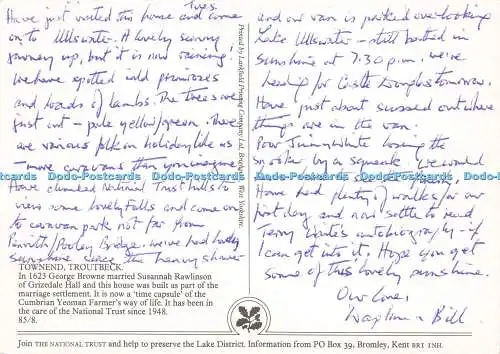 Tues.
Have just visited this house and come
on to Ullswater. A lovely sunny
journey up, but it is now raining!
We have spotted wild primroses
and loads of lambs. The trees are
just out - pale yellow/green. There
are various folk on holiday like us
- more caravans than you imagine
Have climbed National Trust hills to
view some lovely Falls and come on
to caravan park not far from
Penrith/Pooley Bridge. We've had lovely
sunshine since the heavy shower
and our van is parked overlooking
Lake Ullswater - still bathed in
sunshine at 7.30 p.m. We're
heading for Castle Douglas tomorrow.
Have just about sussed out where
things are in the van.
Poor Jimmy White losing the
snooker by a squeak. We would
Have had plenty of walks for our
first day and now settle to read
Terry Waite's autobiography - if
I can get into it! Hope you get
some of this lovely sunshine.
Our love,
Daphne & Bill
Printed by Larkfield Printing Company Ltd, Brighouse, West Yorkshire.
Dodo-Postcards Dodo-Postcards Dodo-Postcards Dodo-Postcards Dodo-Postcards
TOWNEND, TROUTBECK.
In 1623 George Browne married Susannah Rawlinson
of Grizedale Hall and this house was built as part of the
marriage settlement. It is now a 'time capsule' of the
Cumbrian Yeoman Farmer's way of life. It has been in
the care of the National Trust since 1948.
85/8.
Join THE NATIONAL TRUST and help to preserve the Lake District. Information from PO BOX 39, Bromley, Kent BR1 1NH.